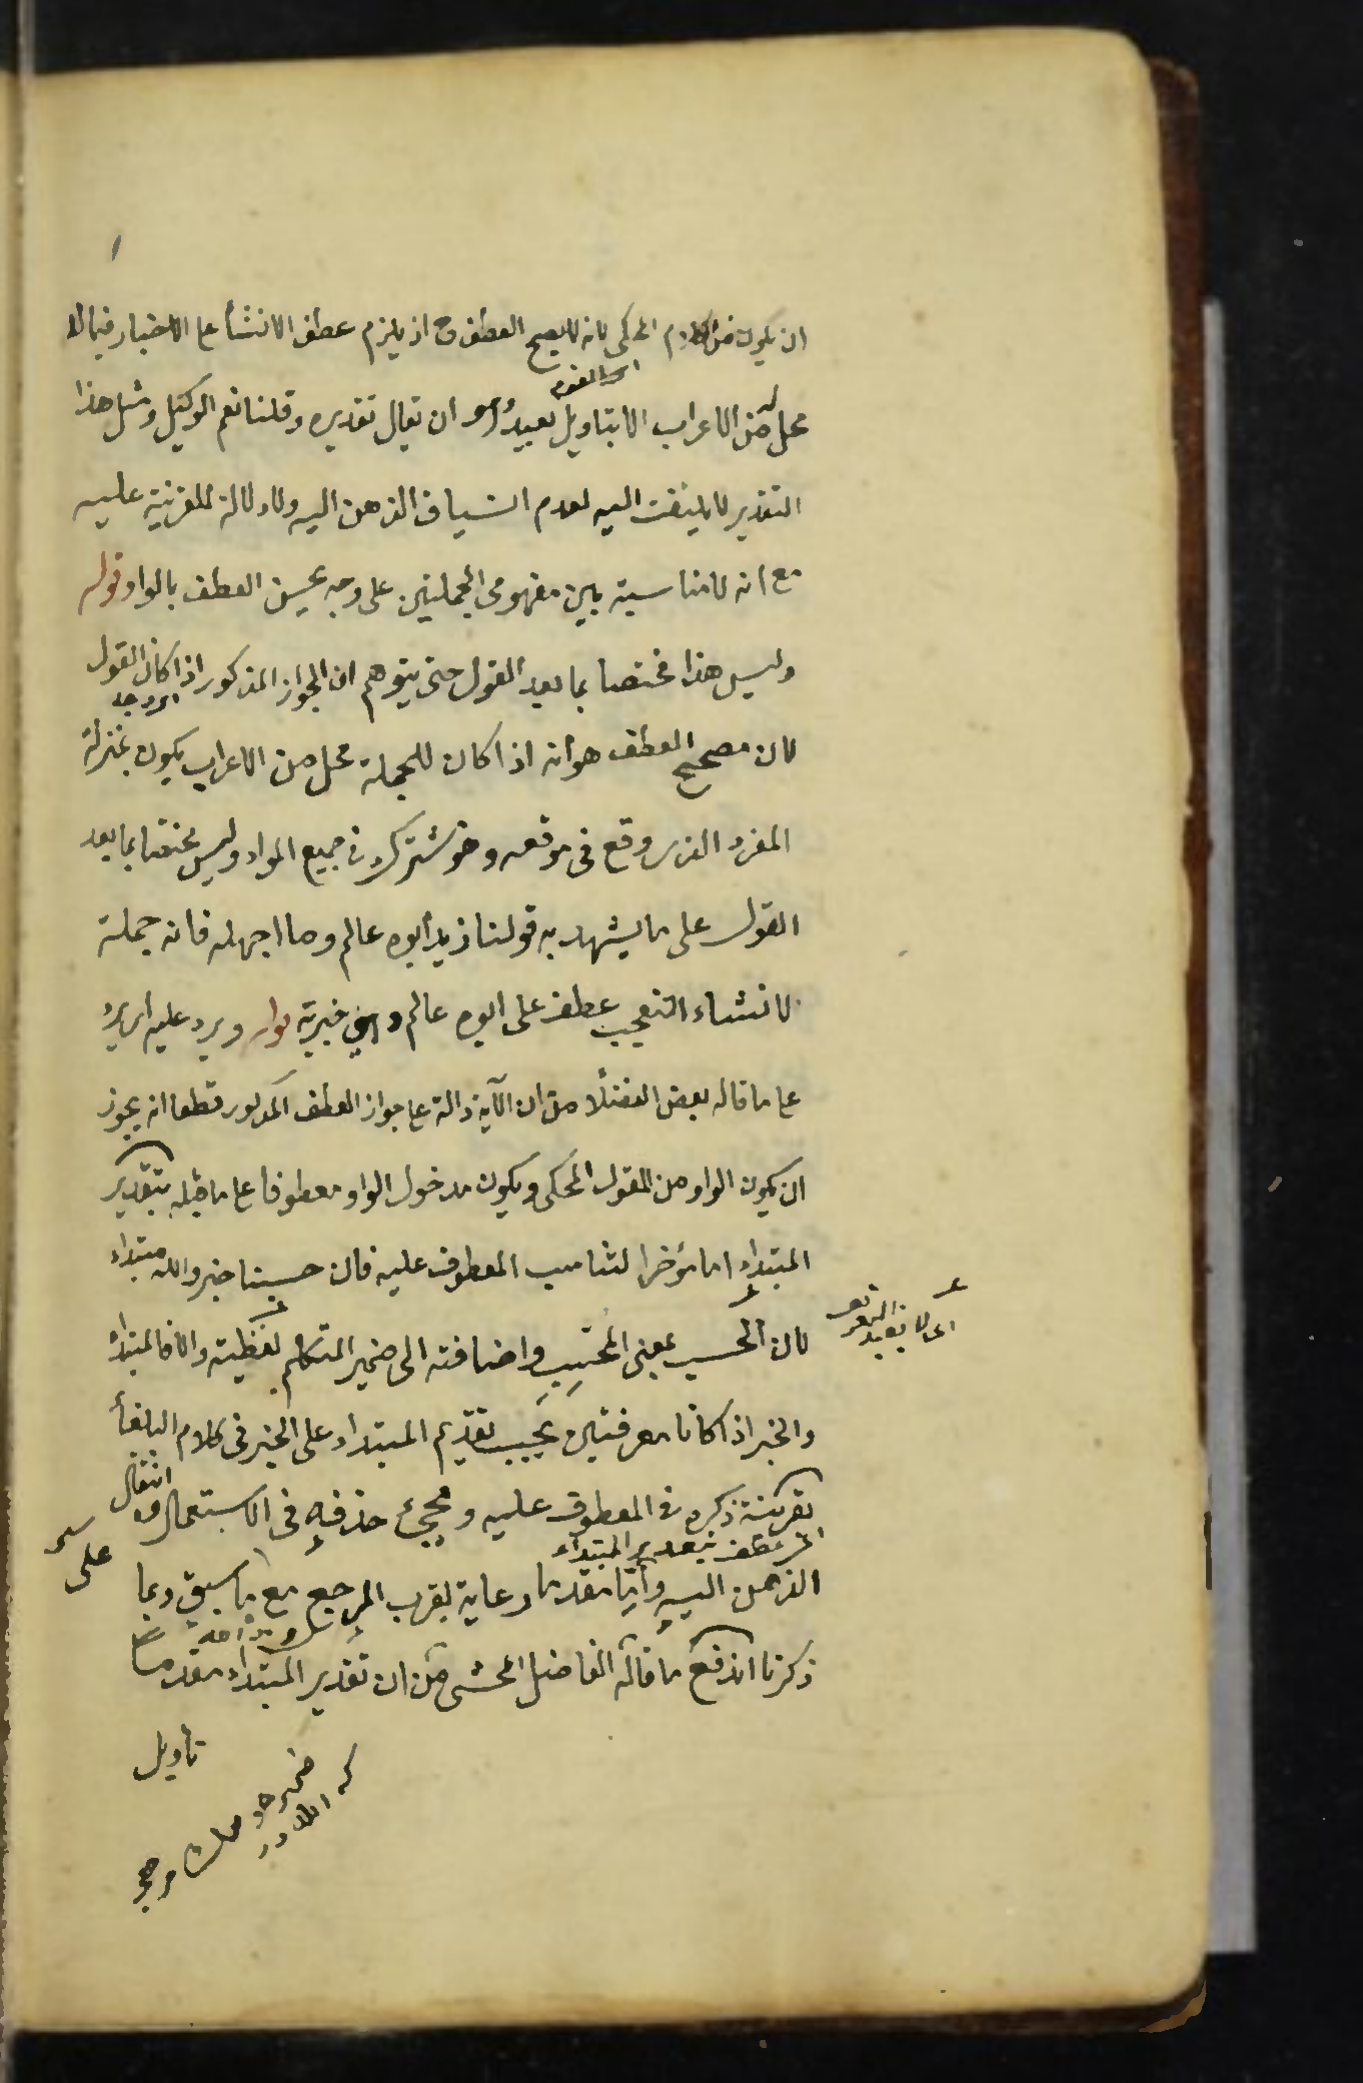 ان يكون من كلام المحكى لانه لا يصح العطف ح اذ يلزم عطف الانشأ على الاخبار فيما لا
محل له من الاعراب الا بتاويل بعيد وهو ان يقال تقديره وقلنا نعم الوكيل ومثل هذا
التقدير لا يلتفت اليه لعدم انسياق الذهن اليه ولا دلالة للقرينة عليه
مع انه لا مناسبة بين مفهومى الجملتين على وجه يحسن العطف بالواو قوله
وليس هذا مختصا بما بعد القول حتى يتوهم ان الجواز المذكور اذا كان القول
لان مصحح العطف هو أنه اذا كان للجملة محل من الاعراب يكون بمنزلة
المفرد الذى وقع فى موقعه وهو مشترك فى جميع المواد وليس مختصا بما بعد
القول على ما يشهد به قولنا زيد أبوه عالم وما اجهله فانه جملة
لانشاء التعجب عطف على ابوه عالم وهى خبرية قوله ويرد عليه اى يرد
على ما قاله بعض الفضلاء من ان الآية دالة على جواز العطف المذكور قطعا انه يجوز
ان يكون الواو من المقول المحكى ويكون مدخول الواو معطوفا على ما قبله بتقدير
المبتداء اما مؤخرا لتناسب المعطوف عليه فان حسبنا خبر والله مبتداء
لان الحسب بمعنى المحسب واضافته الى ضمير المتكلم لفظية والا فالمبتداء
والخبر اذا كانا معرفتين يجب تقديم المبتداء على الخبر فى كلام البلغأ
بقرينة ذكره فى المعطوف عليه ومجئ حذفه فى الاستعمال وانتقال
الذهن اليه وأما مقدما رعاية لقرب المرجع مع ما سبق وبما
ذكرنا اندفع ما قاله الفاضل المحشى من ان تقدير المبتداء مقدما
تأويل